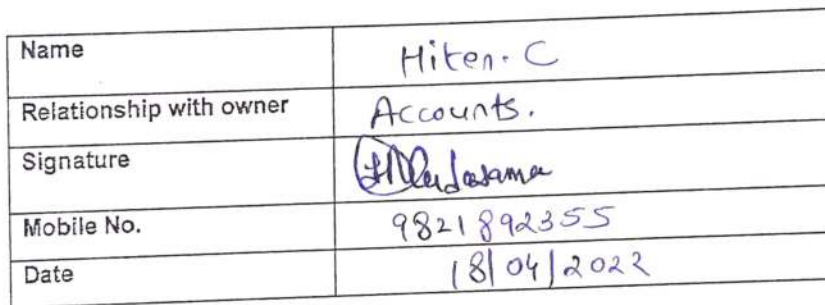 Name Hiten. C
Relationship with owner Accounts.
Signature
Mobile No. 9821892355
Date 18/04/2022